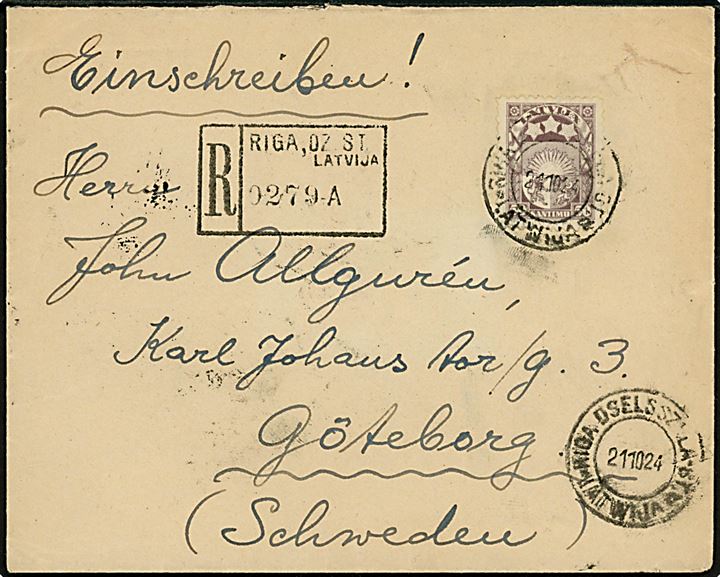 Einschreiben!
LATVIJA
SANTIMU
21 10 24
LATWIJA
R
RIGA, DZ. ST.
LATVIJA
0279-A
Herrn
John Allgurén,
Karl Johans torg. 3.
Göteborg
(Schweden)
RIGA DSELSSZ.
21 10 24
LATWIJA